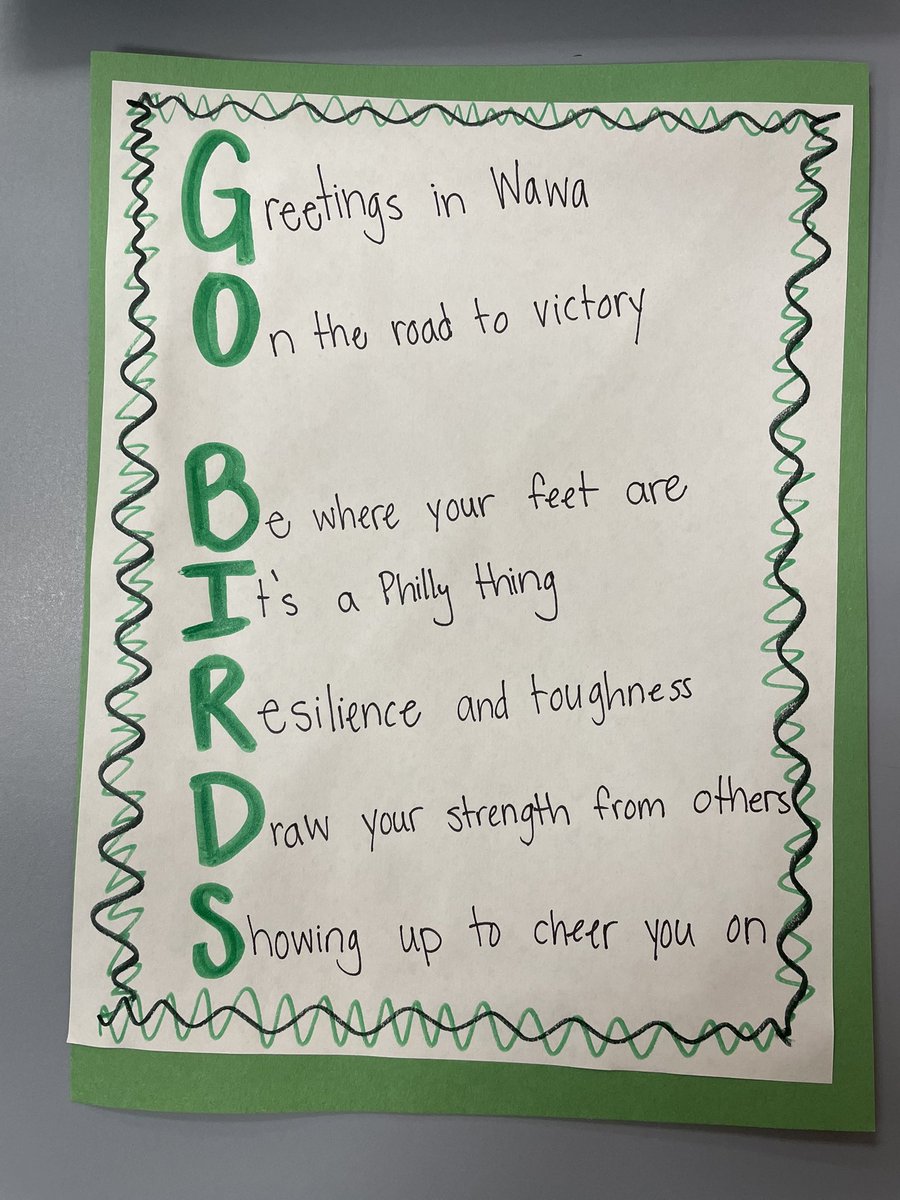 Greetings in Wawa
On the road to victory
Be where your feet are
It's a Philly thing
Resilience and toughness
Draw your strength from others
Showing up to cheer you on